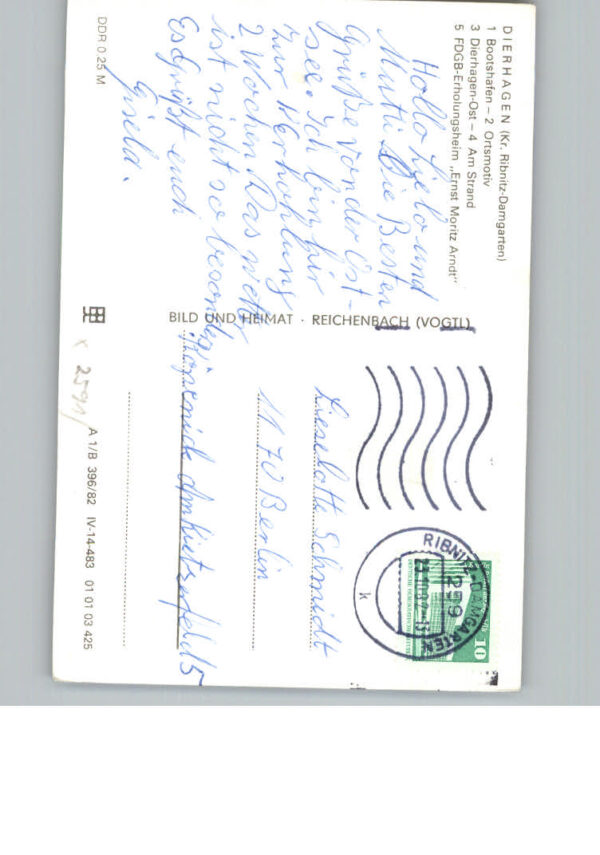 DIERHAGEN (Kr. Ribnitz-Damgarten)
1 Bootshafen – 2 Ortsmotiv
3 Dierhagen-Ost – 4 Am Strand
5 FDGB-Erholungsheim „Ernst Moritz Arndt"
Hallo Lielo und
Mutti Die Besten
Grüße von der Ost-
see. Ich bin hir
zur Kerhohlung
2 Wochen Das wetter
ist nicht so besonders,
Es Grüßt euch
Gisela.
DDR 0,25 M
BILD UND HEIMAT · REICHENBACH (VOGTL)
RIBNITZ-DAMGARTEN
259
k
10
Lieselotte Schmidt
1170 Berlin
Köpenick Amkietzerfeld 5
x 2591
A 1/B 396/82 IV-14-483 01 01 03 425